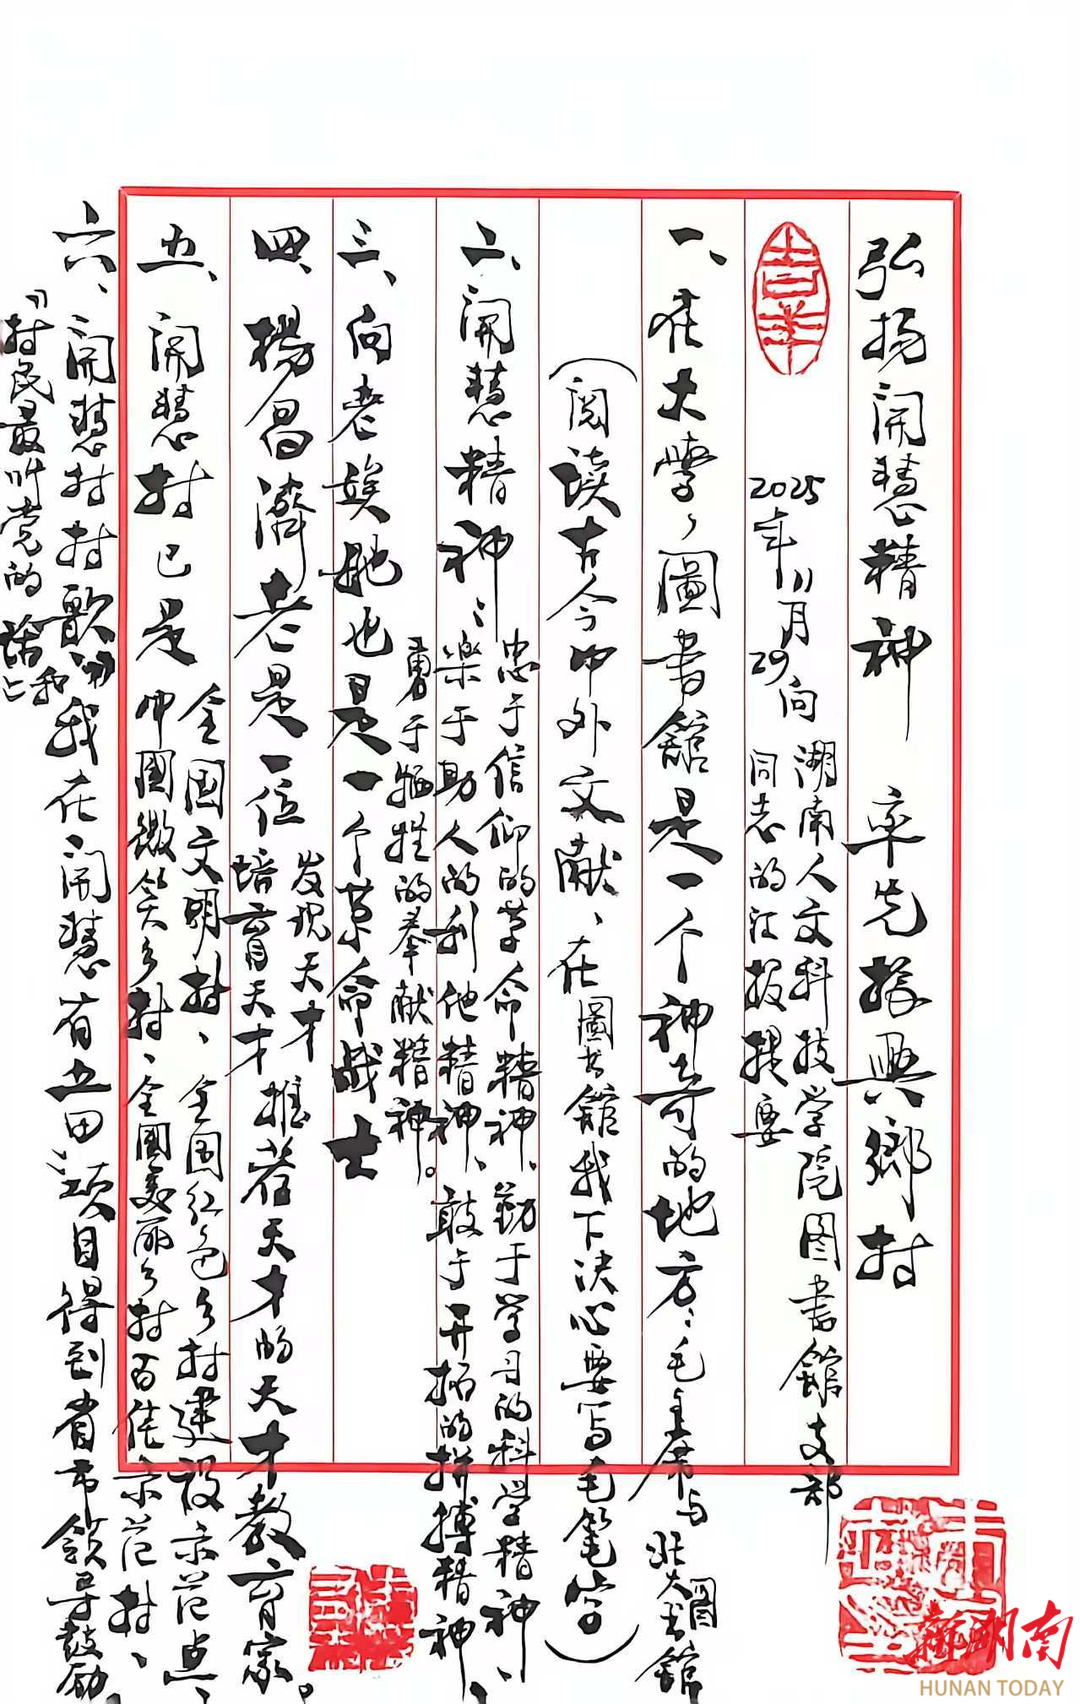 弘扬開慧精神 率先振興鄉村
2025年11月29向
湖南人文科技学院图書館支部
同志的汇报提要
一、在大學,圖書館是一个神奇的地方:毛主席与北大圖书館
(阅读古今中外文献、在圖书館我下决心要写毛笔字)
二、開慧精神:
忠于信仰的革命精神、勤于学习的科学精神、
樂于助人的利他精神、敢于开拓的拼搏精神、
勇于牺牲的奉献精神。
三、向老埃她也是一个革命战士
四、楊昌濟老是一位
发现天才
培育天才
推荐天才的天才教育家。
五、開慧村已是
全国文明村、全国红色乡村建设示范点、
中國微笑乡村、全國美丽乡村百佳示范村、
六、開慧村村歌
《村民最听党的话》和
我在開慧有丘田
项目得到省市領导鼓励。
新湖南
HUNAN TODAY